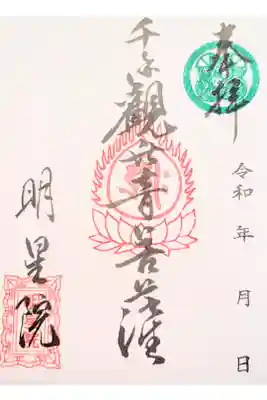 奉拝
令和 年 月 日
千手觀世音菩薩
明星院